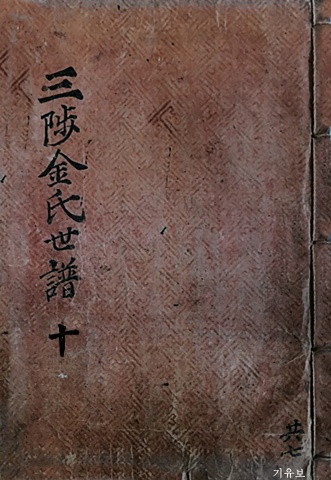 三陟金氏世譜 十
共七
기유보